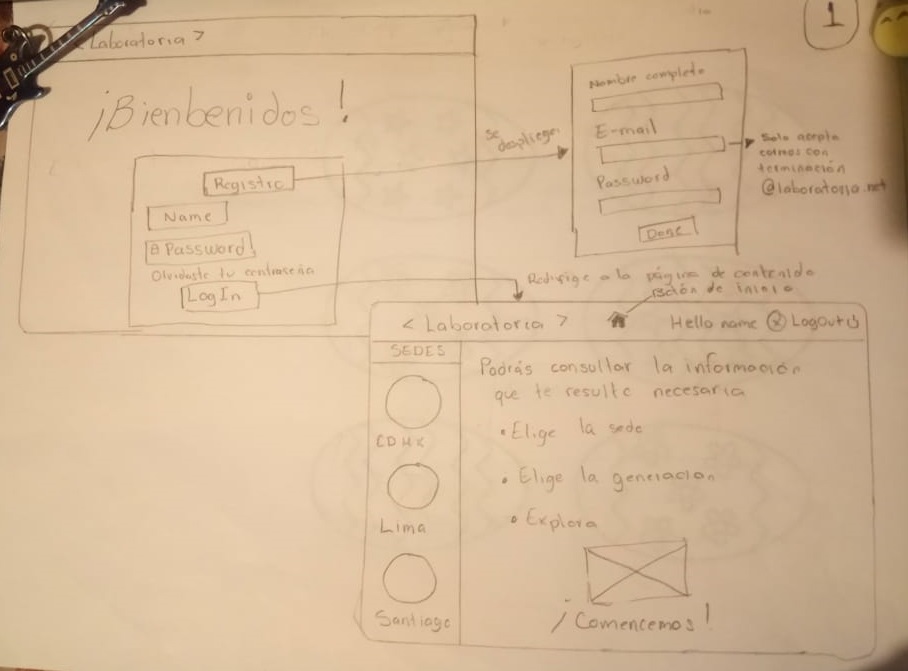 1
< Laboratoria >
¡Bienbenidos!
Registro
Name
Password
Olvidaste tu contraseña
LogIn
Se
despliega
Nombre completo
E-mail
Password
Done
Solo acepta
correos con
terminación
@laboratoria.net
Redirige a la página de contenido
de inicio
< Laboratoria >
Hello name
LogOut
SEDES
CDMX
Lima
Santiago
Podrás consultar la información
que te resulte necesaria
• Elige la sede
• Elige la generación
• Explora
¡Comencemos!